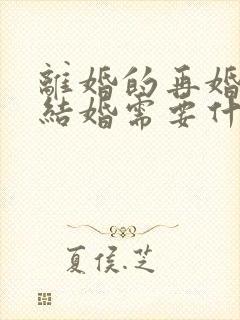 離婚的再婚
結婚需要什
夏侯.芝